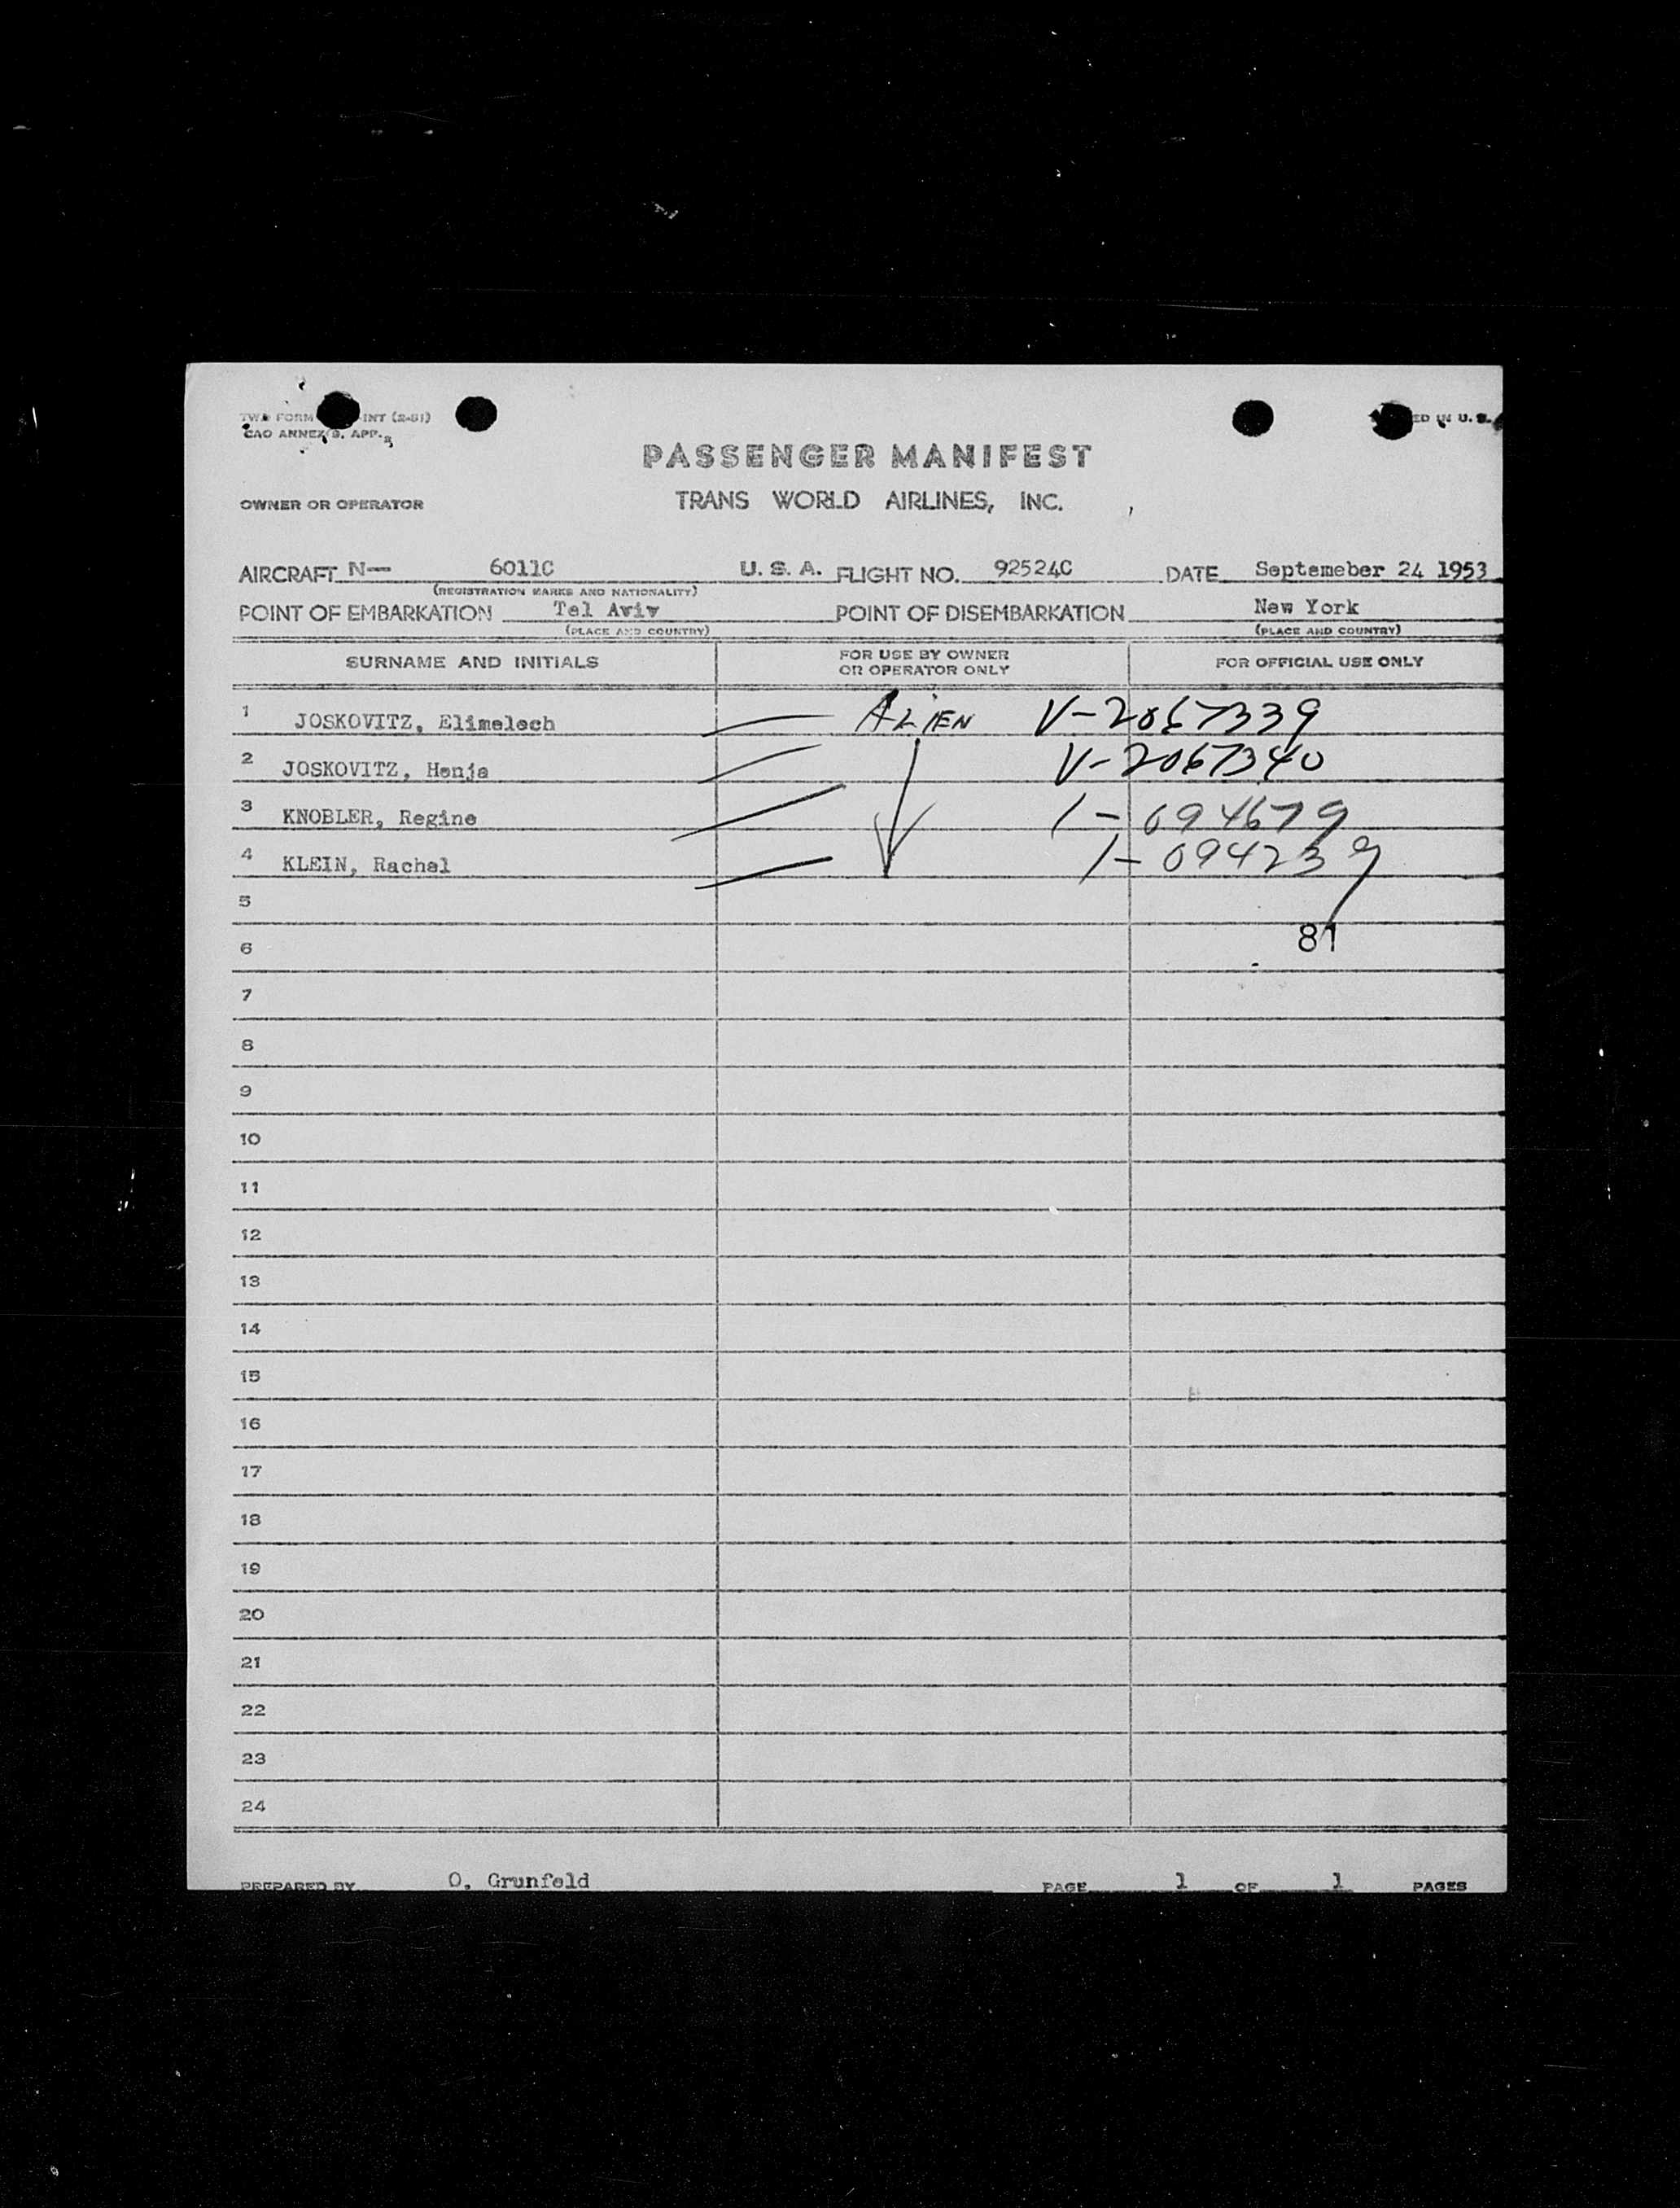 TWA FORM INT (2-51)
CAO ANNEX 9, APP.
ED IN U. S.
PASSENGER MANIFEST
OWNER OR OPERATOR TRANS WORLD AIRLINES, INC.
AIRCRAFT N— 6011C U. S. A. FLIGHT NO. 92524C DATE Septemeber 24 1953
(REGISTRATION MARKS AND NATIONALITY)
POINT OF EMBARKATION Tel Aviv POINT OF DISEMBARKATION New York
(PLACE AND COUNTRY) (PLACE AND COUNTRY)
SURNAME AND INITIALS FOR USE BY OWNER OR OPERATOR ONLY FOR OFFICIAL USE ONLY
1 JOSKOVITZ, Elimelech ALIEN V-2067339
2 JOSKOVITZ, Henja V-2067340
3 KNOBLER, Regine 1-094679
4 KLEIN, Rachel 1-094239
5
6 81
7
8
9
10
11
12
13
14
15
16
17
18
19
20
21
22
23
24
PREPARED BY O. Grunfeld PAGE 1 OF 1 PAGES